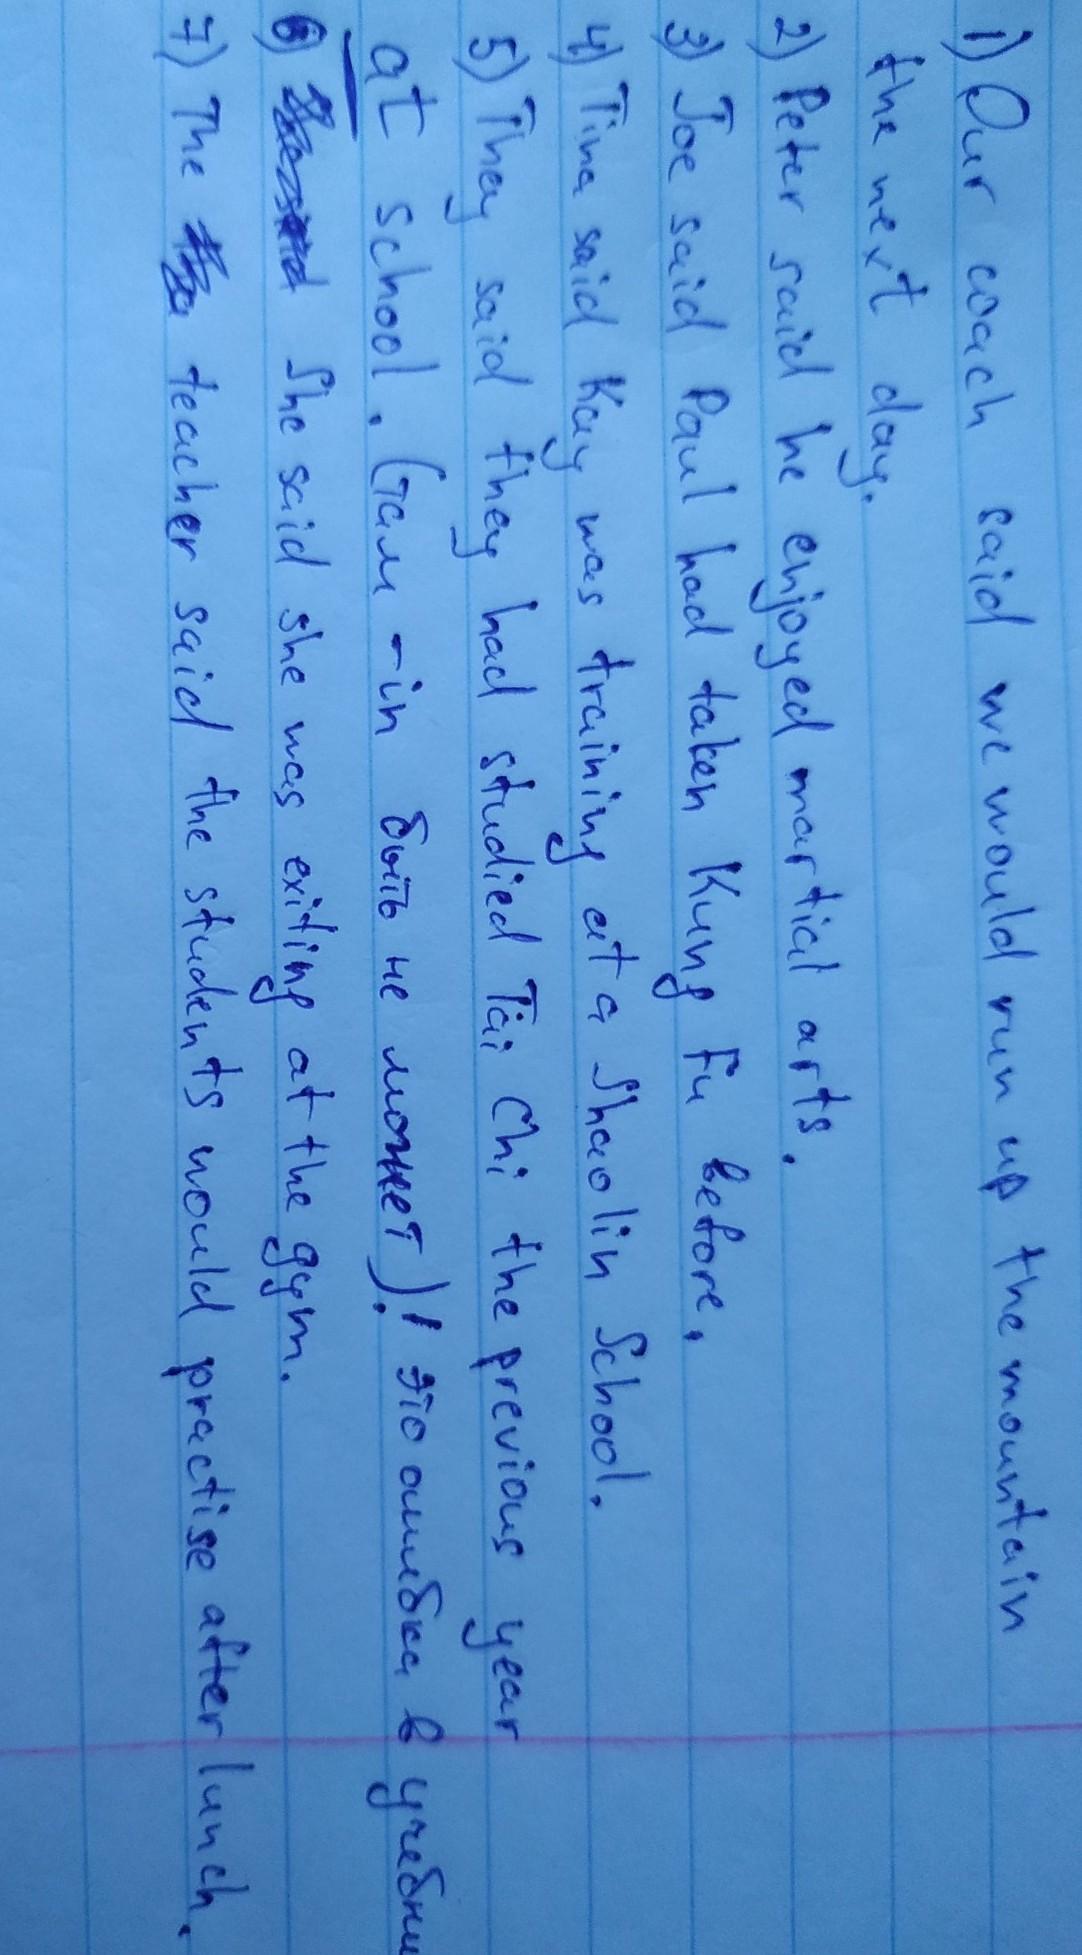 1) Our coach said we would run up the mountain
the next day.
2) Peter said he enjoyed martial arts.
3) Joe said Paul had taken Kung Fu before.
4) Tina said Kay was training at a Shaolin School.
5) They said they had studied Tai Chi the previous year
at school. (там - in быть не может)! это ошибка в учебни
6) She said she was exiting at the gym.
7) The teacher said the students would practise after lunch.